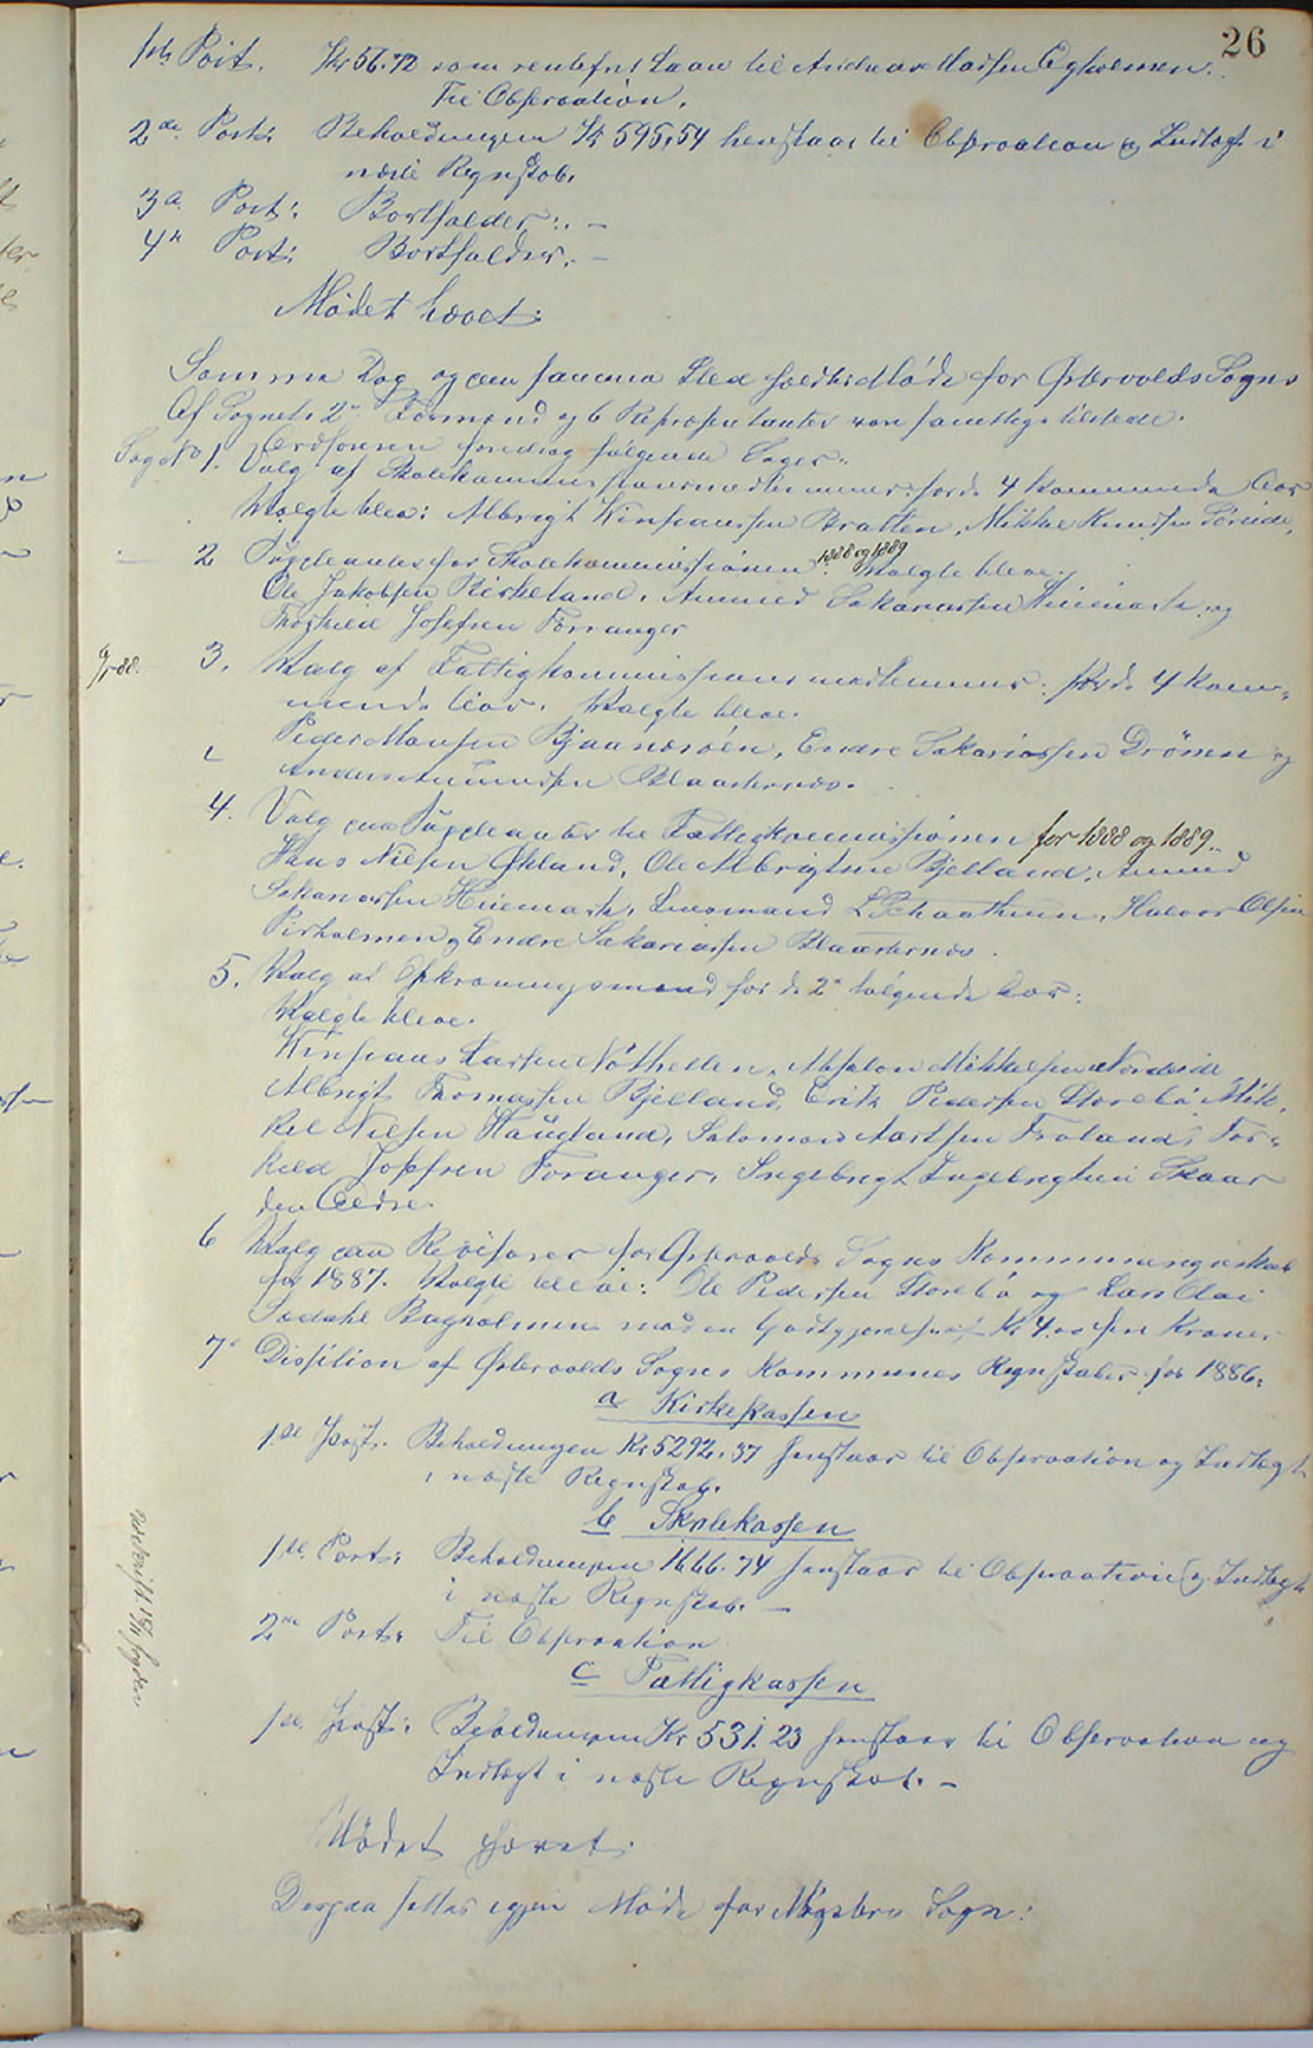 26
1ste Post. Kr 56.72 som rentefrit Laan til Andreas Madsen Ægholmen.
Til Observation.
2den Post: Beholdningen Kr 595,54 henstaar til Observation og Indtægt i
næste Regnskab.
3die Post: Bortfalder:. –
4de Post: Bortfalder. –
Mødet hævet:
Samme Dag og paa samme Sted holdtes Møde for Østervolds Sogn
Af Sognets 2de Formænd og 6 Repræsentanter vare samtlige tilstede.
Ordføreren foredrog følgende Sager:
Sag No 1. Valg af Skolekommissionsmedlemmer for de 4 kommende Aar
Valgte blev: Albrigt Kinssanssen Bratten, Mikkel Knudsen Søreide.
— 2 Suppleanter for Skolekommissionen 1888 og 1889. Valgte bleve:
Ole Jakobsen Birkeland, Ammund Sakariassen Hiemark og
Thorkild Josefsen Forranger
3. Valg af Fattigkommissionsmedlemmer: for de 4 kom-
mende Aar. Valgte bleve.
Peder Monsen Bjaanesøen, Endre Sakariassen Drönen og
Anders Blaasternæs.
4. Valg paa Suppleanter til Fattigkommissionen for 1888 og 1889..
Hans Nilsen Økland, Ole Albrigtsen Bjelland, Amund
Sakariassen Hiemark, Lensmand L Schaathun, Halvor Olsen
Pirholmen og Endre Sakariassen Blaasternæs.
5. Valg af Opkrævningsmænd for de 2de følgende Aar:
Valgte bleve.
Kinssans Larsen Nøthellen, Absalon Mikkelsen Nordeide
Albrigt Thomassen Bjelland, Erik Pedersen Storebø Mik-
kel Nilsen Haugland, Salomon Froland, Tor-
kild Josefsen Foranger, Ingebrigt Ingebrigtsen Skaar
den Ældre.
6 Valg paa Revisorer for Østervolds Sogns Kommuneregnskab
for 1887. Valgte bleve: Ole Pedersen Storebø og Lars Olai
Sædahl Bagholmen mod en Godtgjørelse af Kr 4.00 fire Kroner.
7. Dission af Østervolds Sogns Kommunes Regnskaber for 1886.
a Kirkekassen
1ste Post. Beholdningen Kr 5292.37 henstaar til Observation og Indtægt
i næste Regnskab.
b Skolekassen
1ste Post: Beholdningen 1666.74 henstaar til Observation og Indtægt
i næste Regnskab. —
2den Post: Til Observation
c Fattigkassen
1ste Post: Beholdningen Kr 531.23 henstaar til Observation og
Indtægt i næste Regnskab. –
Mødet hævet.
Derpaa sattes igjen Møde for Møgsters Sogn: